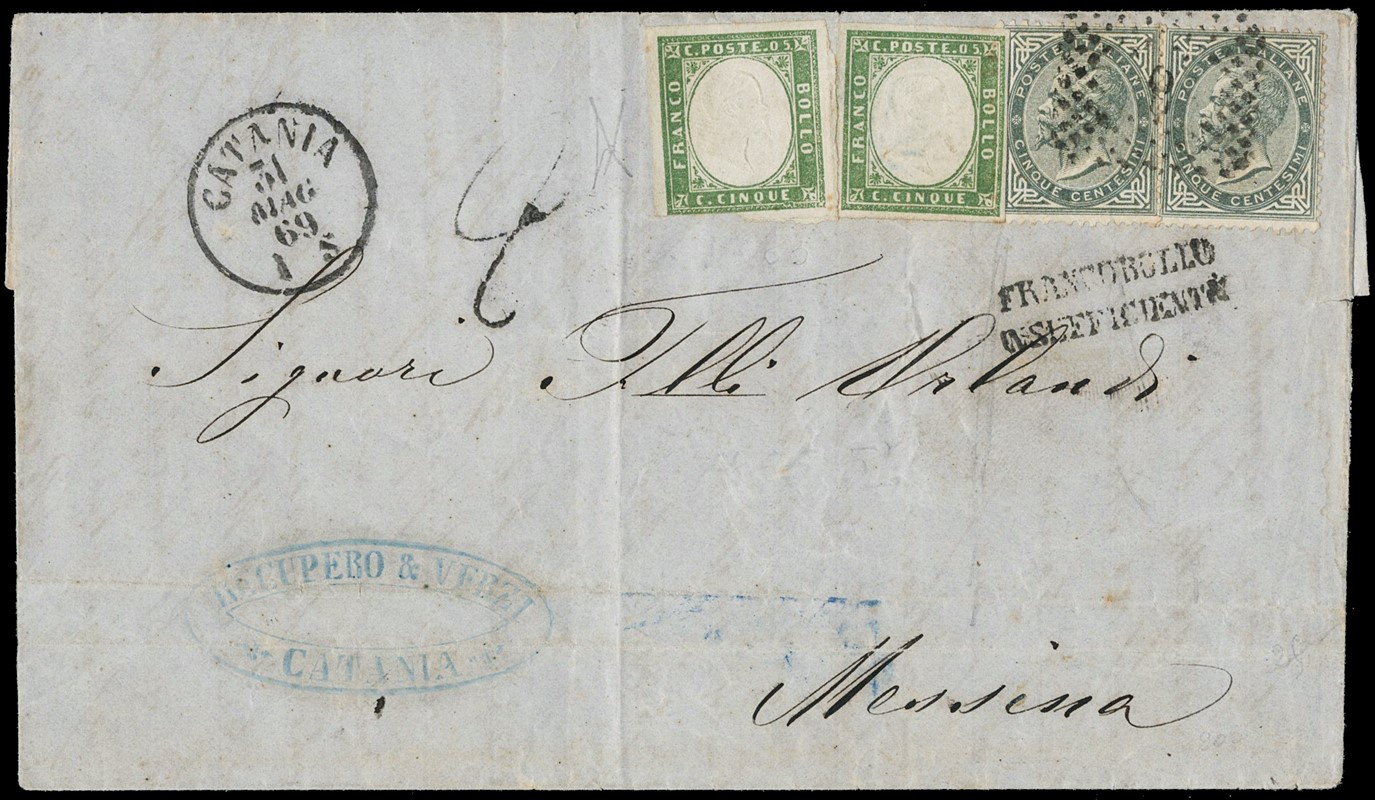 C. POSTE. 05
FRANCO
BOLLO
C. CINQUE
C. POSTE. 05
FRANCO
BOLLO
C. CINQUE
POSTE ITALIANE
CINQUE CENTESIMI
POSTE ITALIANE
CINQUE CENTESIMI
9
CATANIA
31
MAG
69
FRANCOBOLLO
INSUFFICIENTE
Signori Flli Orlandi
RECUPERO &
CATANIA
Messina